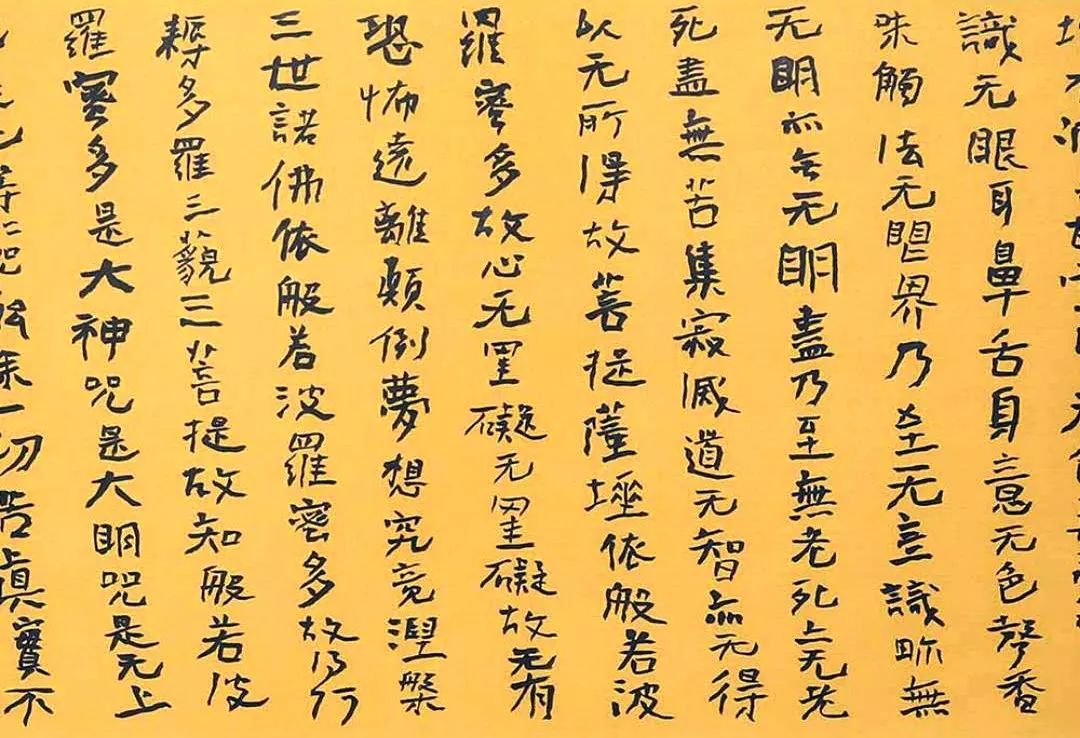 識无眼耳鼻舌身意无色聲香
味觸法无眼界乃至无意識界無
无明亦无无明盡乃至無老死亦无老
死盡無苦集寂滅道无智亦无得
以无所得故菩提薩埵依般若波
羅蜜多故心无罣礙无罣礙故无有
恐怖遠離顛倒夢想究竟涅槃
三世諸佛依般若波羅蜜多故得阿
耨多羅三藐三菩提故知般若波
羅蜜多是大神咒是大明咒是无上
等〻咒能除一切苦真寶不